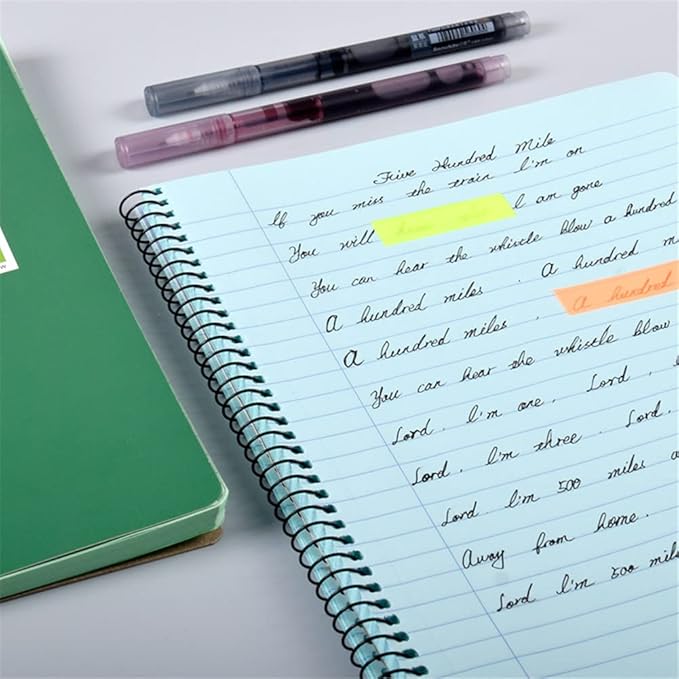 Five Hundred Mile
If you miss the train I'm on
You will I am gone
You can hear the whistle blow a hundred
A hundred miles . A hundred m
A hundred miles . A hundred
You can hear the whistle blow
Lord I'm one . Lord ,
Lord . I'm three . Lord .
Lord I'm 500 miles a
Away from home .
Lord I'm 500 mil